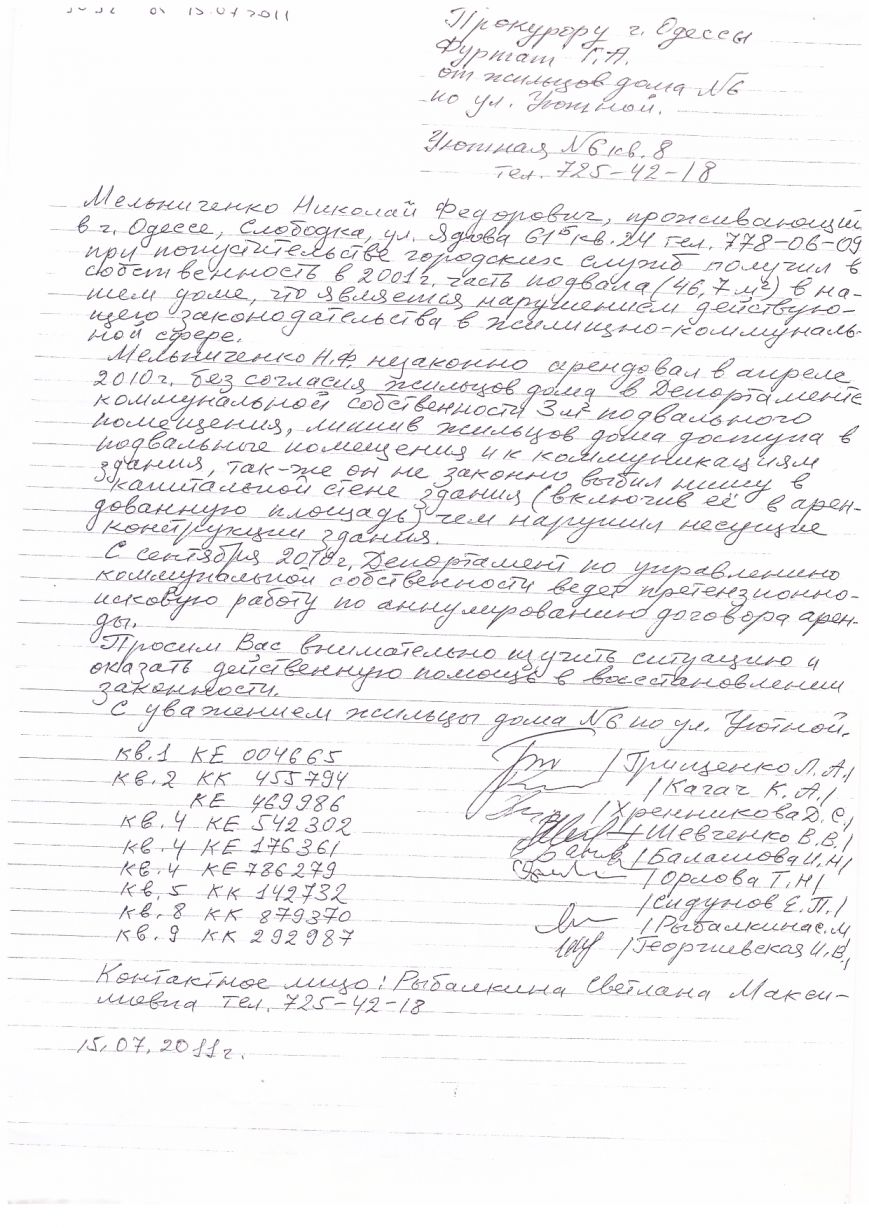 от 15.07 2011
Прокурору г. Одессы
Фурман Г.А.
от жильцов дома №6
по ул. Уютной.
Уютная №6 кв. 8
тел. 725-42-18
Мельниченко Николай Федорович, проживающий
в г. Одессе, Слободка, ул. Ядова 61б кв. 24 тел. 778-06-09
при попустительстве городских служб получил в
собственность в 2001г. часть подвала (46,7 м²) в на-
шем доме, что является нарушением действую-
щего законодательства в жилищно-коммуналь-
ной сфере.
Мельниченко Н.Ф. незаконно арендовал в апреле
2010г. без согласия жильцов дома в Депортаменте
коммунальной собственности 3 м² подвального
помещения, лишив жильцов дома доступа в
подвальные помещения и к коммуникациям
здания, так-же он не законно выбил нишу в
капитальной стене здания (включив её в арен-
дованную площадь) чем нарушил несущие
конструкции здания.
С сентября 2010г. Депортамент по управлению
коммунальной собственности ведет претензионно-
исковую работу по аннулированию договора арен-
ды.
Просим Вас внимательно изучить ситуацию и
оказать действенную помощь в восстановлении
законности.
С уважением жильцы дома №6 по ул. Уютной.
кв. 1 КЕ 004665 /Грищенко Л.А./
кв. 2 КК 455794 /Кагач К.А./
КЕ 469986 /Хренникова Д.С./
кв. 4 КЕ 542302 /Шевченко В.В./
кв. 4 КЕ 176361 /Балашова И.Н/
кв. 4 КЕ 786279 /Орлова Т.Н/
кв. 5 КК 142732 /Сидунов Е.П./
кв. 8 КК 879370 /Рыбалкина С.М
кв. 9 КК 292987 /Георгиевская И.В./
Контактное лицо: Рыбалкина Светлана Макси-
мовна тел. 725-42-18
15.07.2011г.